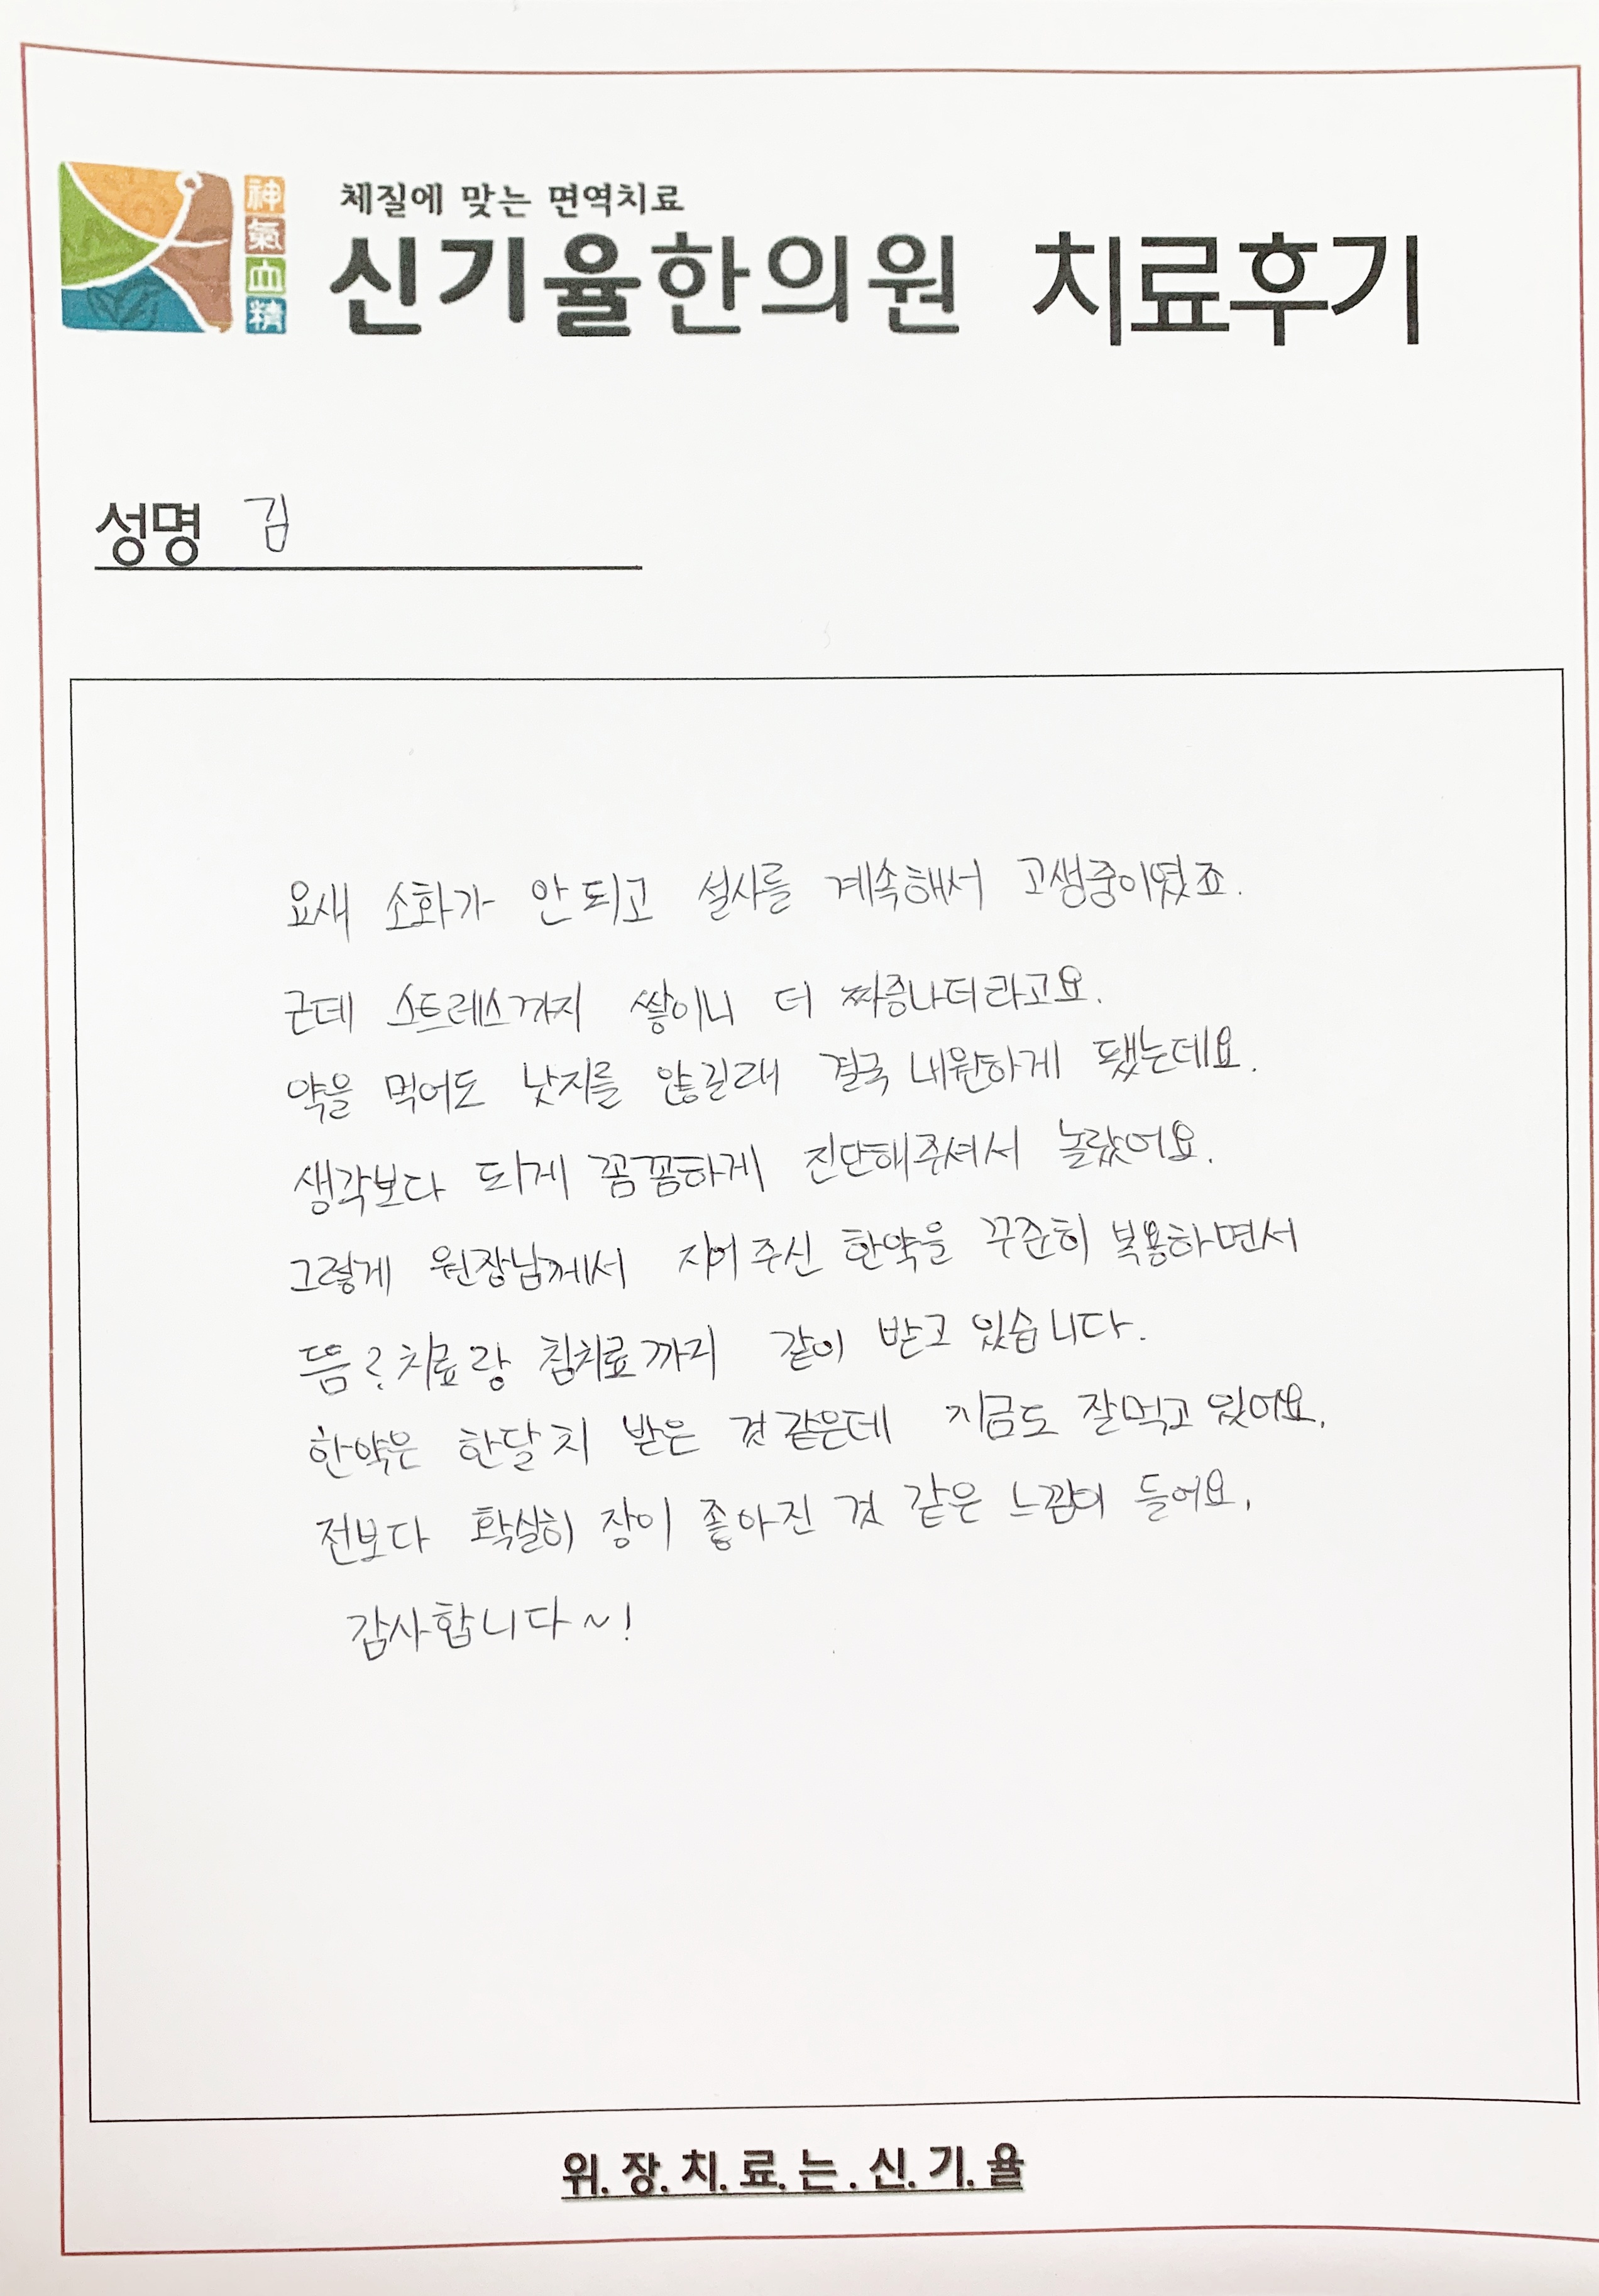 체질에 맞는 면역치료
神氣血精
신기율한의원 치료후기
성명 김
요새 소화가 안되고 설사를 계속해서 고생중이였죠.
근데 스트레스까지 쌓이니 더 짜증나더라고요.
약을 먹어도 낫지를 않길래 결국 내원하게 됐는데요.
생각보다 되게 꼼꼼하게 진단해주셔서 놀랐어요.
그렇게 원장님께서 지어주신 한약을 꾸준히 복용하면서
뜸?치료랑 침치료까지 같이 받고있습니다.
한약은 한달치 받은 것같은데 지금도 잘먹고있어요.
전보다 확실히 장이 좋아진 것 같은 느낌이 들어요.
감사합니다~!
위.장.치.료.는.신.기.율